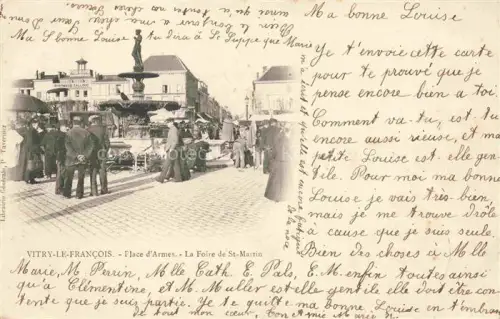 Ma bonne Louise
Je t'envoie cette carte
pour te prouvé que je
pense encore bien a toi.
Comment va-tu, est-tu
encore aussi rieuse, et ma
petite Louise est elle gen-
tille. Pour moi ma bonne
Louise je vais très-bien
mais je me trouve drôle
à cause que je suis seule.
Bien des choses à Mlle
Marie, M. Perrin, Mlle Cath. E. Palo, E. M. enfin toutes ainsi
qu'a Clémentine, et M. Muller est elle gentille elle doit être con-
tente que je suis partie. Je te quitte ma bonne Louise en t'embras
de tout mon cœur, ton amie Marie
Ma bonne Louise tu dira à Sr que Marie
VITRY-LE-FRANÇOIS. - Place d'Armes. - La Foire de St-Martin
Librairie Générale, P. Tavernier